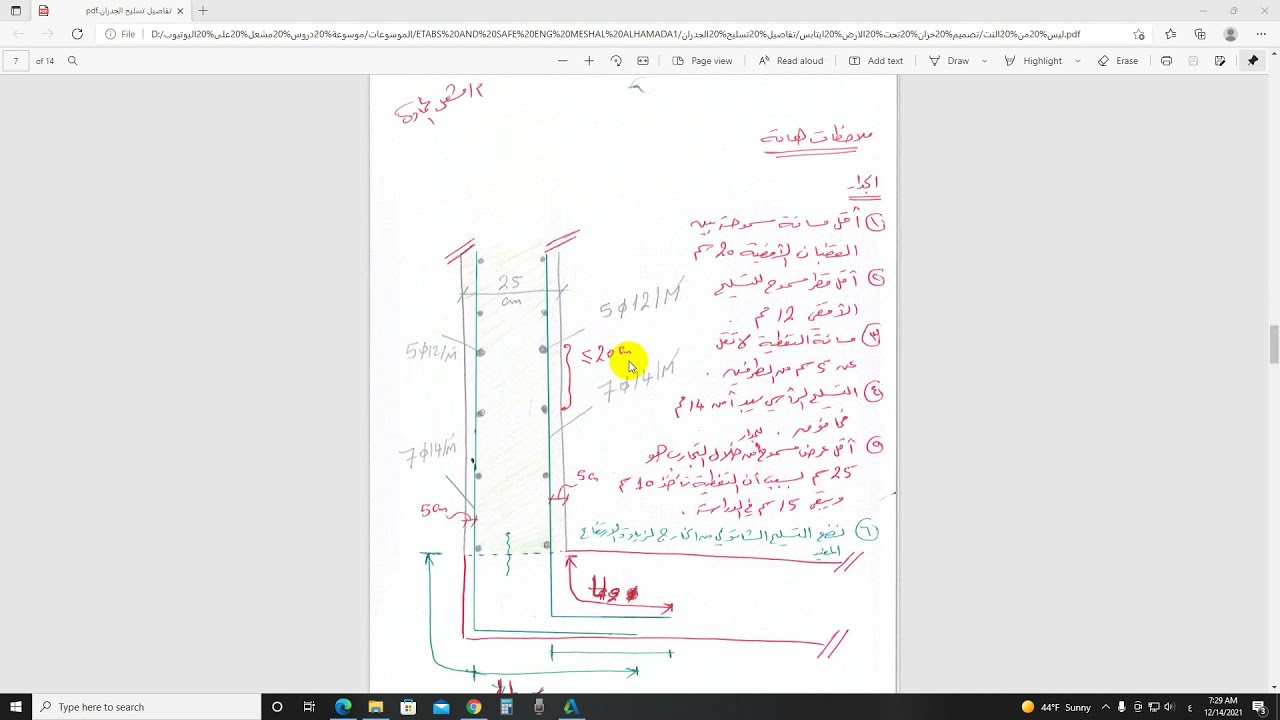 تفاصيل تسليح الجدران.pdf
File
D:/ليس%20من%20النت/تصميم%20خزان%20تحت%20الارض%20ايتابس/تفاصيل%20تسليح%20الجدران/ETABS%20AND%20SAFE%20ENG%20MESHAL%20ALHAMADA1/الموسوعات/موسوعة%20دروس%20مشعل%20على%20اليوتيوب.pdf
7 of 14
Page view
Read aloud
Add text
Draw
Highlight
Erase
ملاحظات هامة
الجدار
① أقل مسافة مسموحة بين
القضبان الأفقية 20 سم
② أقل قطر مسموح للتسليح
الأفقي 12 مم .
③ مسافة التغطية لا تقل
عن 5 سم من الطرفين .
④ التسليح الرأسي يبدأ من 14 مم
فما فوق .
⑤ أقل عرض مسموح للجدار من خلال التجارب هو
25 سم بسبب أن التغطية تأخذ 10 سم
ويبقى 15 سم في الدراسة .
⑥ نضع التسليح الثانوي من الخارج لزيادة الارتفاع
المفيد
25
cm
5Φ12/M
≤20cm
7Φ14/M
5Φ12/M
7Φ14/M
5cm
5cm
Type here to search
44°F Sunny
7:29 AM
12/14/2021